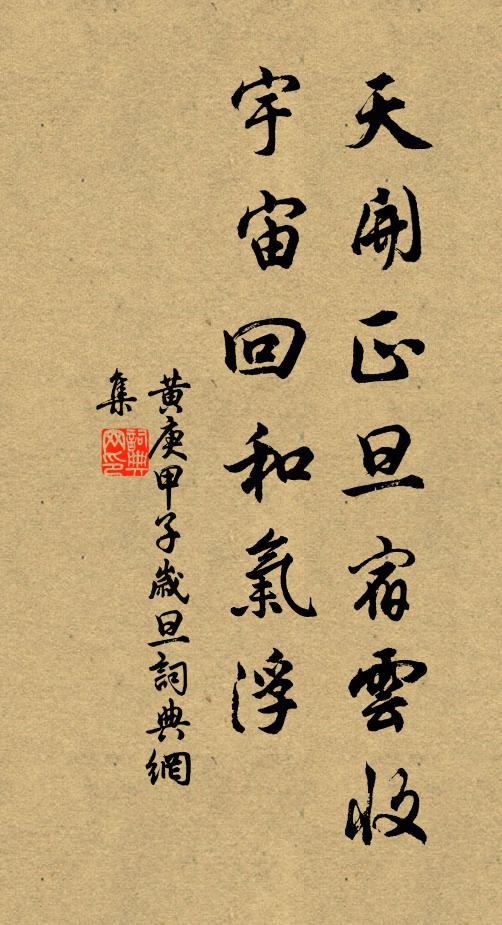 天開正旦宿雲收
宇宙回和氣浮
黄庚甲子歲旦詞典網
集
詞典
网印